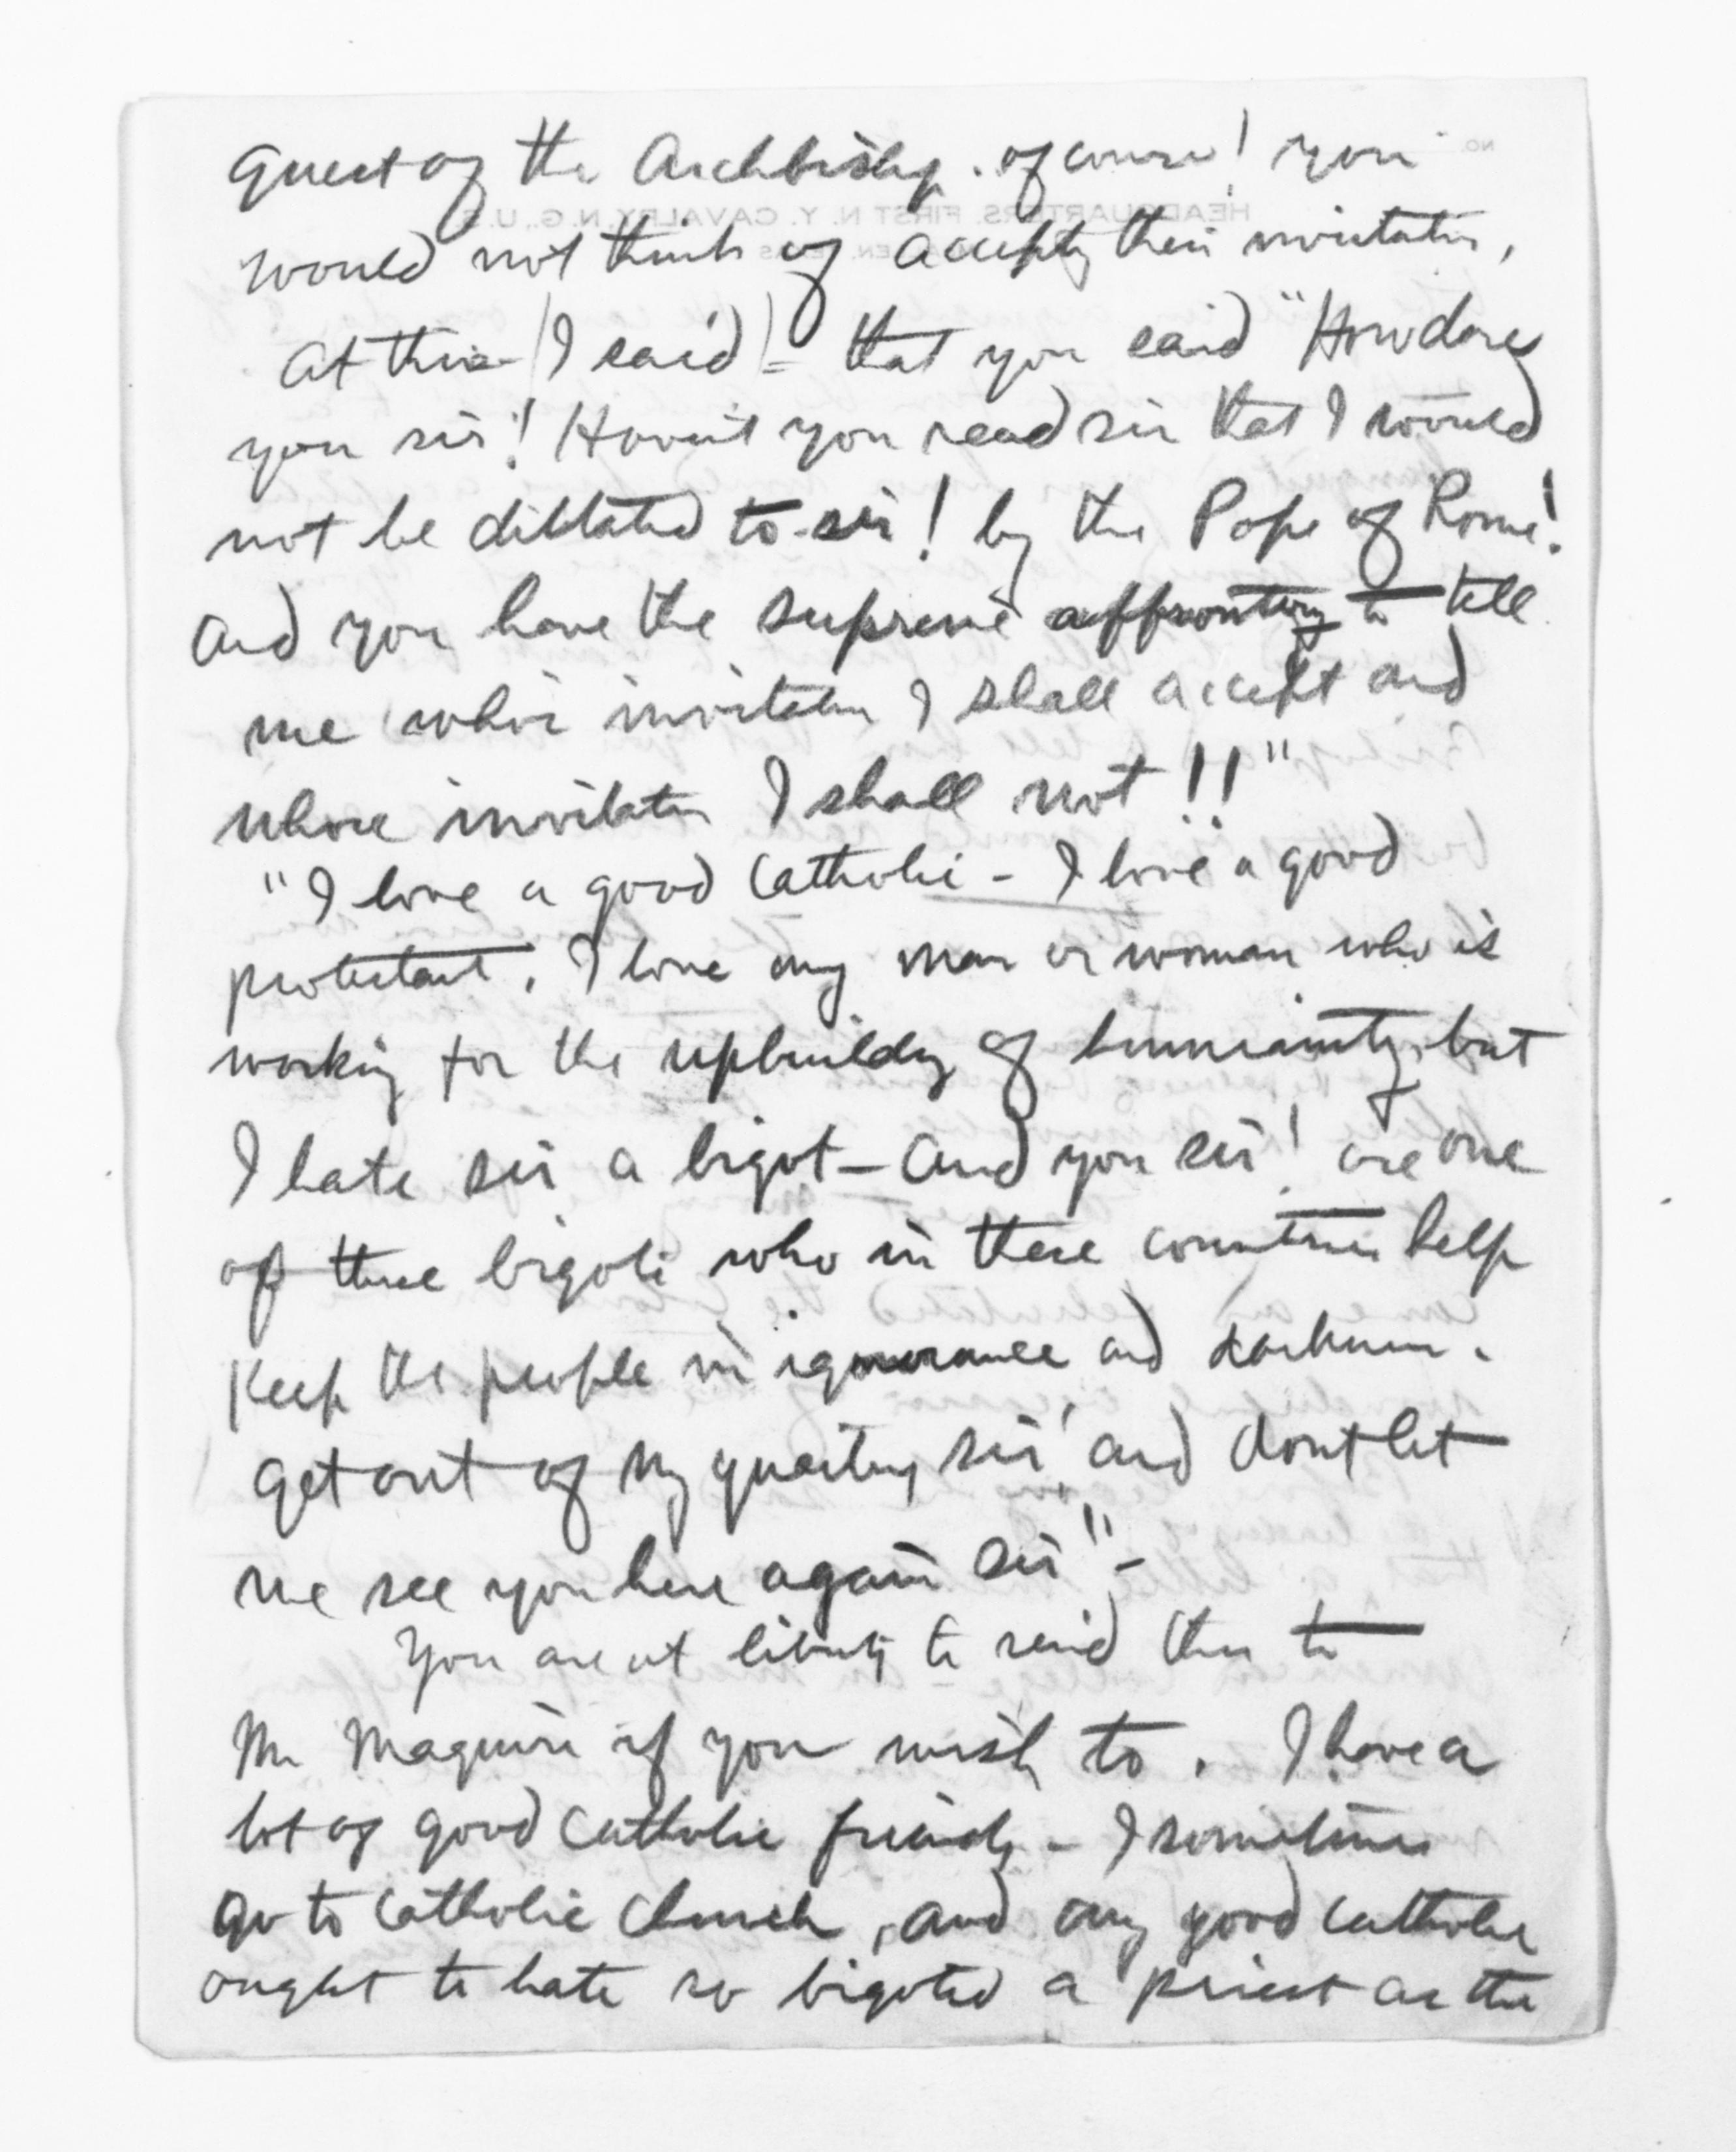 guest of the Archbishop. of course! you
would not think of accepting their invitation,
At this (I said) - that you said "How dare
you sir! Havn't you read sir that I would
not be dictated to sir! by the Pope of Rome!
and you have the supreme affrontery to tell
me whose invitation I shall accept and
whose invitation I shall not!!"
"I love a good Catholic - I love a good
protestant. I love any man or woman who is
working for the upbuilding of humanity, but
I hate sir a bigot - and you sir! are one
of those bigots who in these countries help
Keep the people in ignorance and darkness.
Get out of my quarters sir! and dont let
me see you here again sir" -
You are at liberty to send this to
Mr Maguire if you wish to. I have a
lot of good Catholic friends - I sometimes
go to Catholic Church, and any good Catholic
ought to hate so bigoted a priest as this